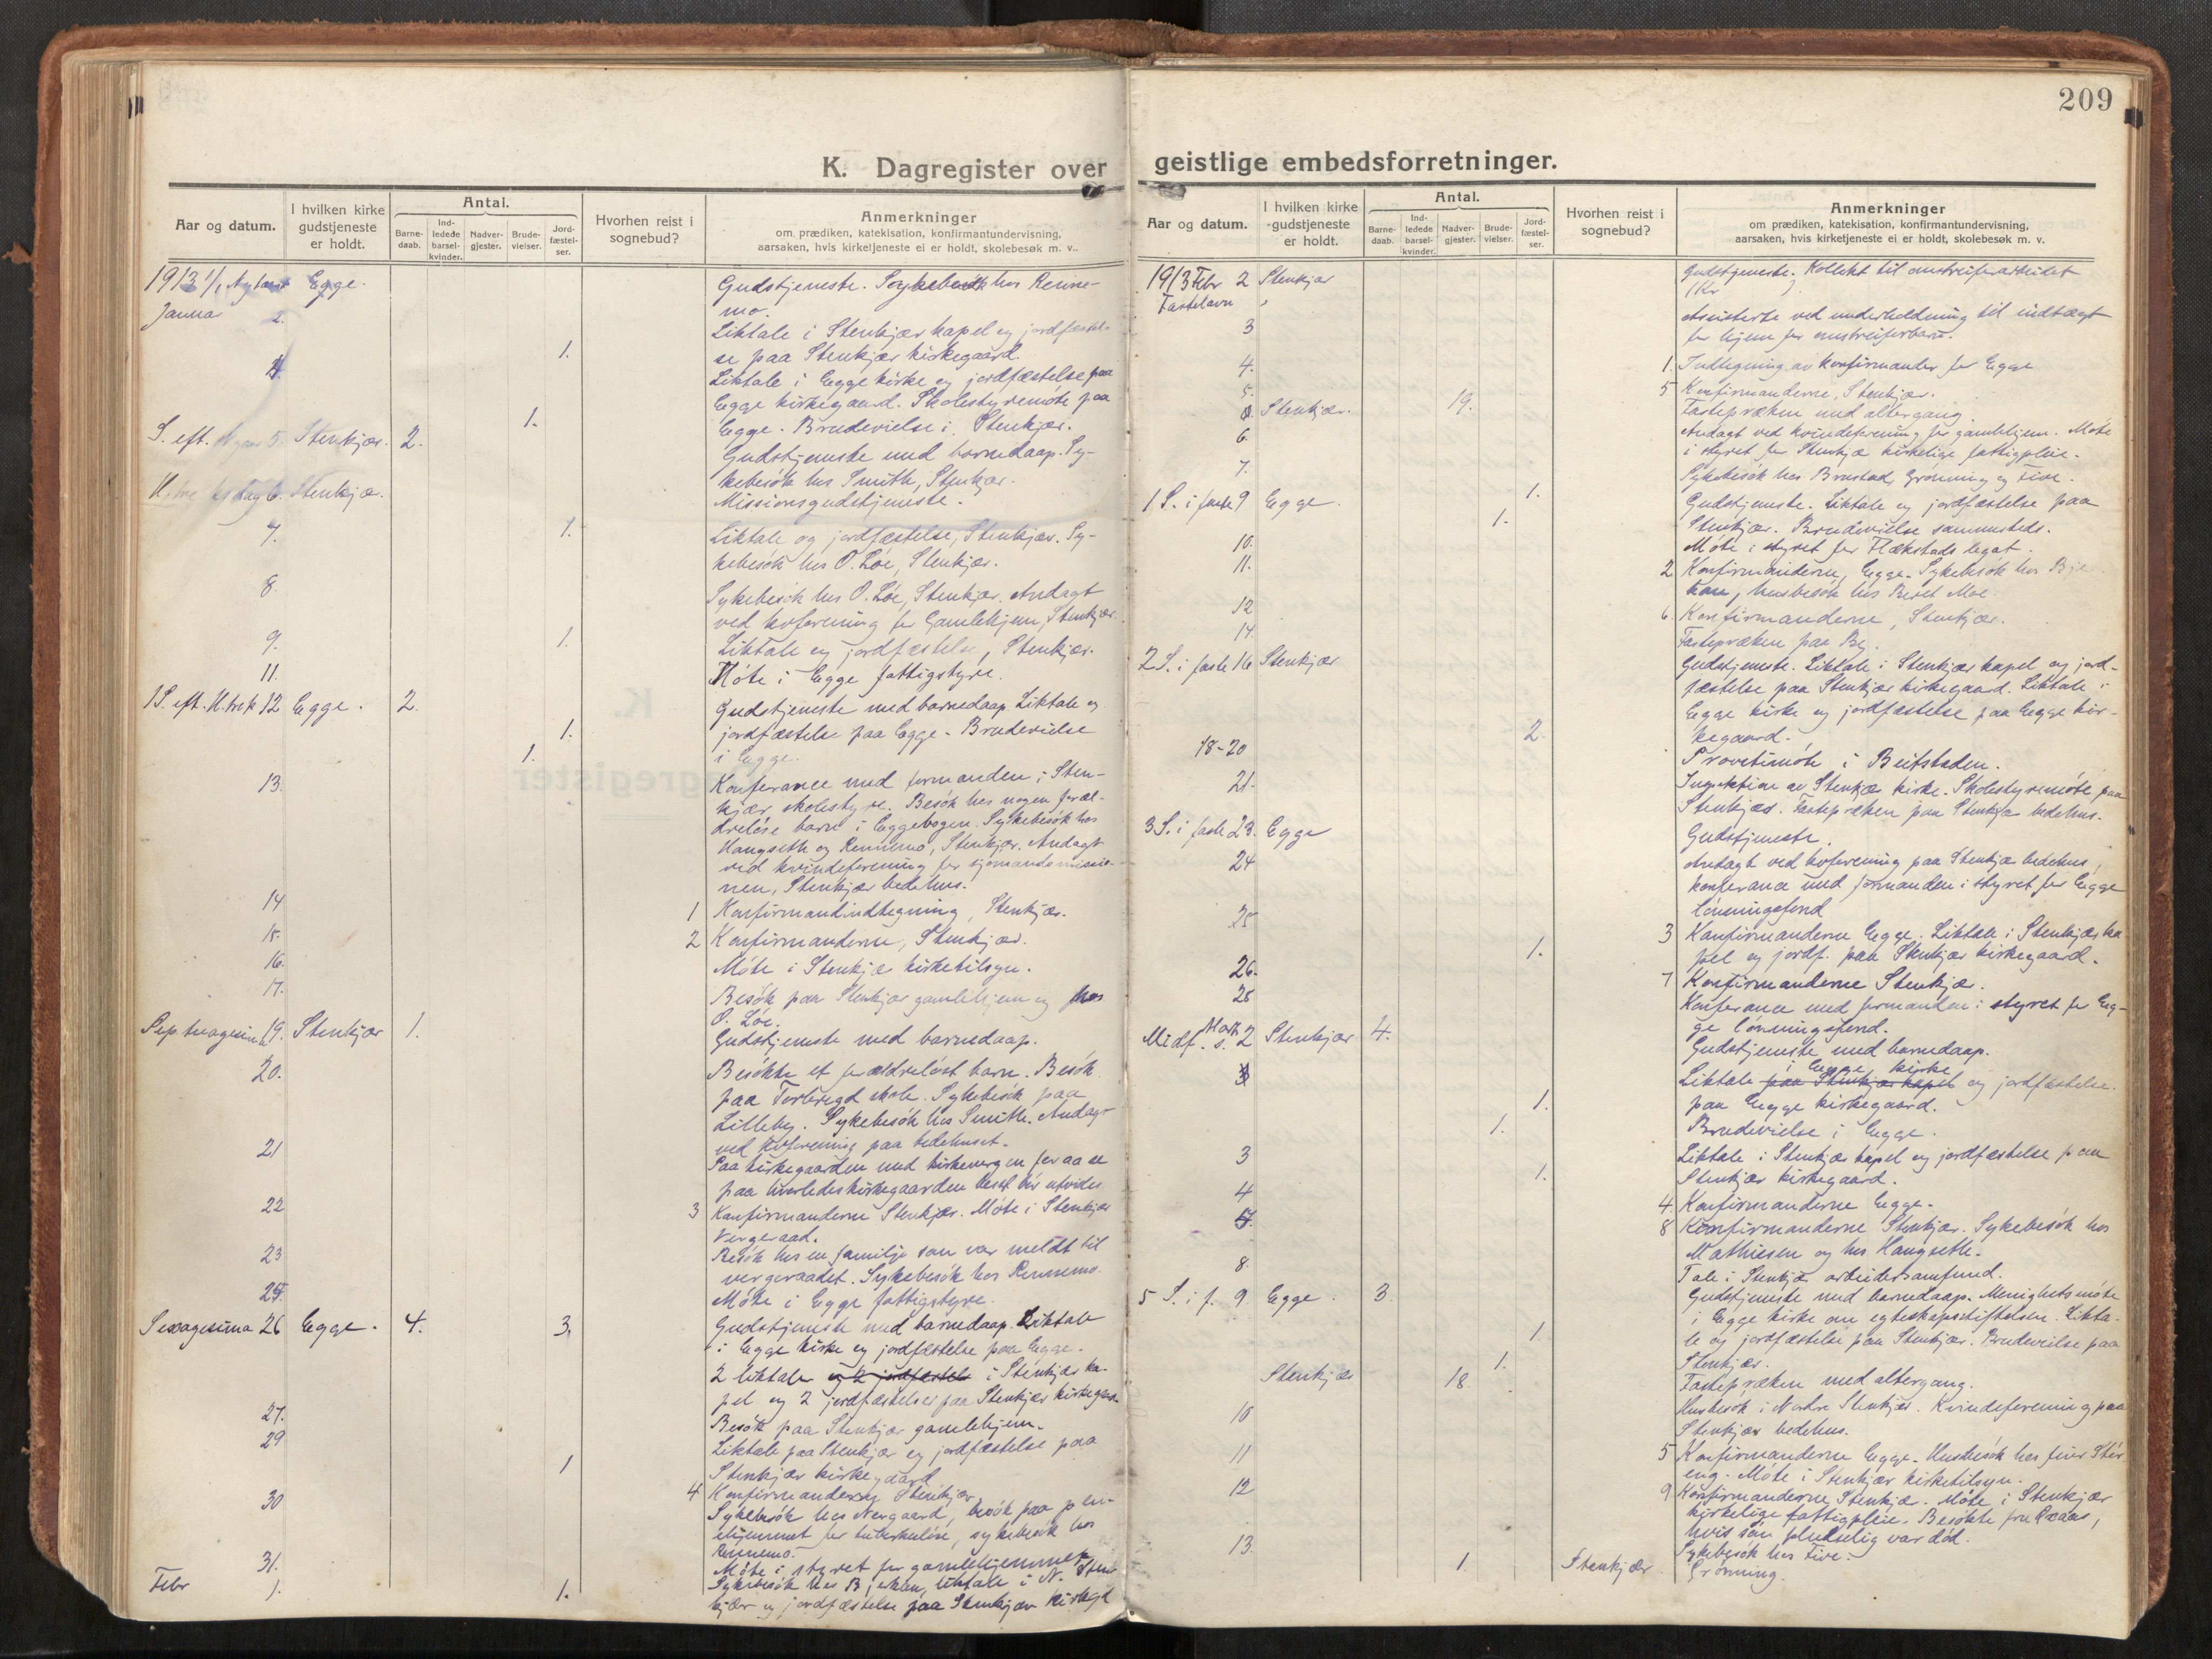 209
K. Dagregister over geistlige embedsforretninger.
Aar og datum.
I hvilken kirke gudstjeneste er holdt.
Antal.
Barne-daab.
Ind-ledede barsel-kvinder.
Nadver-gjester.
Brude-vielser.
Jord-fæstel-ser.
Hvorhen reist i sognebud?
Anmerkninger
om prædiken, katekisation, konfirmantundervisning,
aarsaken, hvis kirketjeneste ei er holdt, skolebesøk m. v..
1913 1/1 Egge. Gudstjeneste. Sykebesök hos Renne-
mo.
Januar 2. Liktale i Stenkjær kapel og jordfæstel-
1. se paa Stenkjær kirkegaard.
4. Liktale i Egge kirke og jordfæstelse paa
Egge kirkegaard. Skolestyremöte paa
1. Egge. Brudevielse i Stenkjær.
S. eft. 5. Stenkjær. 2. Gudstjeneste med barnedaap. Sy-
kebesök hos Smith, Stenkjær.
6. Stenkjær. Missionsgudstjeneste.
7. 1. Liktale og jordfæstelse, Stenkjær. Sy-
kebesök hos O. Löe, Stenkjær.
8. Sykebesök hos O. Löe, Stenkjær. Andagt
ved kvforening for Gamlehjem, Stenkjær.
9. 1. Liktale og jordfæstelse, Stenkjær.
11. Möte i Egge fattigstyre.
1 S. eft. H. trek 12 Egge. 2. Gudstjeneste med barnedaap. Liktale og
1. jordfæstelse paa Egge. Brudevielse
1. i Egge.
13. Konferance med formanden i Sten-
kjær skolestyre. Besök hos nogen foræl-
drelöse barn i Eggebogen. Sykebesök hos
Haugseth og Rennemo, Stenkjær. Andagt
ved kvindeforening for sjömandsmissio-
nen, Stenkjær bedehus.
14 1 Konfirmandindtegning, Stenkjær.
15. 2 Konfirmanderne, Stenkjær.
16. Möte i Stenkjær kirketilsyn.
17. Besök paa Stenkjær gamlehjem og hos
O. Löe.
Septuagesima 19. Stenkjær 1. Gudstjeneste med barnedaap.
20. Besökte et forældrelöst barn. Besök
paa skole. Sykebesök paa
Lilleby. Sykebesök hos Smith. Andagt
ved kvforening paa bedehuset.
21 Paa kirkegaarden med kirkevergen for aa se
paa hvorledes kirkegaarden best bör utvides
22 3 Konfirmanderne Stenkjær. Möte i Stenkjær
Vergeraad.
23 Besök hos en familje som var meldt til
vergeraadet. Sykebesök hos Rennemo.
25. Möte i Egge fattigstyre.
Sexagesima 26 Egge. 4. 3. Gudstjeneste med barnedaap. Liktale
i Egge kirke og jordfæstelse paa Egge.
2 liktaler og 2 jordfæstels i Stenkjær ka-
pel og 2 jordfæstelser paa Stenkjær kirkegaa
27. Besök paa Stenkjær gamlehjem.
29 Liktale paa Stenkjær og jordfæstelse paa
1 Stenkjær kirkegaard
4 Konfirmanderne Stenkjær.
30 Sykebesök hos Nergaard, besök paa plei-
ehjemmet for tuberkulöse, sykebesök hos
Rennemo.
31. Möte i styret for gamlehjemmet
Febr 1. 1. Sykebesök hos Bjerkan, liktale i N. Sten
kjær og jordfæstelse paa Stenkjær kirkegd
Aar og datum.
I hvilken kirke gudstjeneste er holdt.
Antal.
Barne-daab.
Ind-ledede barsel-kvinder.
Nadver-gjester.
Brude-vielser.
Jord-fæstel-ser.
Hvorhen reist i sognebud?
Anmerkninger
om prædiken, katekisation, konfirmantundervisning,
aarsaken, hvis kirketjeneste ei er holdt, skolebesøk m. v.
1913 Febr 2 Stenkjær Gudstjeneste. Kollekt til omstreiferarbeidet
Fastelavn
3 Assisterte ved underholdning til indtægt
for hjem for omstreiferbarn.
4. 1. Indtegning av konfirmander for Egge
5. 5 Konfirmanderne, Stenkjær.
Stenkjær. 19. Fastepræken med altergang.
6. Andagt ved kvindeforening for gamlehjem. Möte
i styret for Stenkjær kirkelige fattigpleie.
7. Sykebesök hos Brustad, Grönning og Five.
1 S. i faste 9 Egge. 1. Gudstjeneste. Liktale og jordfæstelse paa
1. Stenkjær. Brudevielse sammesteds.
10. Möte i styret for Flækstads legat.
11. 2 Konfirmanderne, Egge. Sykebesök hos Bje
kan, husbesök hos Beret Moe
12 6. Konfirmanderne, Stenkjær.
14. Fastepræken paa By.
2 S. i faste 16 Stenkjær Gudstjeneste. Liktale i Stenkjær kapel og jord-
fæstelse paa Stenkjær kirkegaard. Liktale i
Egge kirke og jordfæstelse paa Egge kir-
2. kegaard.
18-20 Provstimöte i Beitstaden.
21. Inspektion av Stenkjær kirke. Skolestyremöte paa
Stenkjær. Fastepræken paa Stenkjær bedehus.
3 S. i faste 23. Egge Gudstjeneste.
24 Andagt ved kvforening paa Stenkjær bedehus,
konferance med formanden i styret for Egge
lönningsfond
25 3 Konfirmanderne Egge. Liktale i Stenkjær ka
1. pel og jordf. paa Stenkjær kirkegaard.
26. 7 Konfirmanderne Stenkjær.
28 Konferance med formanden i styret for Eg-
ge lönningsfond.
Midf. s. Mars 2 Stenkjær 4. Gudstjeneste med barnedaap.
i Egge kirke
3 Liktale paa Stenkjær kapel og jordfæstelse
1. paa Egge kirkegaard.
1. Brudevielse i Egge.
3 Liktale i Stenkjær kapel og jordfæstelse paa
1. Stenkjær kirkegaard.
4 4. Konfirmanderne Egge.
8 Konfirmanderne Stenkjær. Sykebesök hos
Mathiesen og hos Haugseth.
8. Tale i Stenkjær arbeidersamfund.
5 S. i f. 9. Egge. 3. Gudstjeneste med barnedaap. Menighetsmöte
i Egge kirke om egteskapsstiftelsen. Likta-
1. le og jordfæstelse paa Stenkjær. Brudevielse paa
1. Stenkjær.
Stenkjær 18. Fastepræken med altergang.
10 Husbesök i Nordre Stenkjær. Kvindeforening paa
Stenkjær bedehus.
11 5 Konfirmanderne Egge. Husbesök hos
eng. Möte i Stenkjær kirketilsyn.
12 9 Konfirmanderne Stenkjær. Möte i Stenkjær
kirkelige fattigpleie. Besökte fru
hvis sön pludselig var död.
13. Sykebesök hos Five.
1 Stenkjær. Grönning.